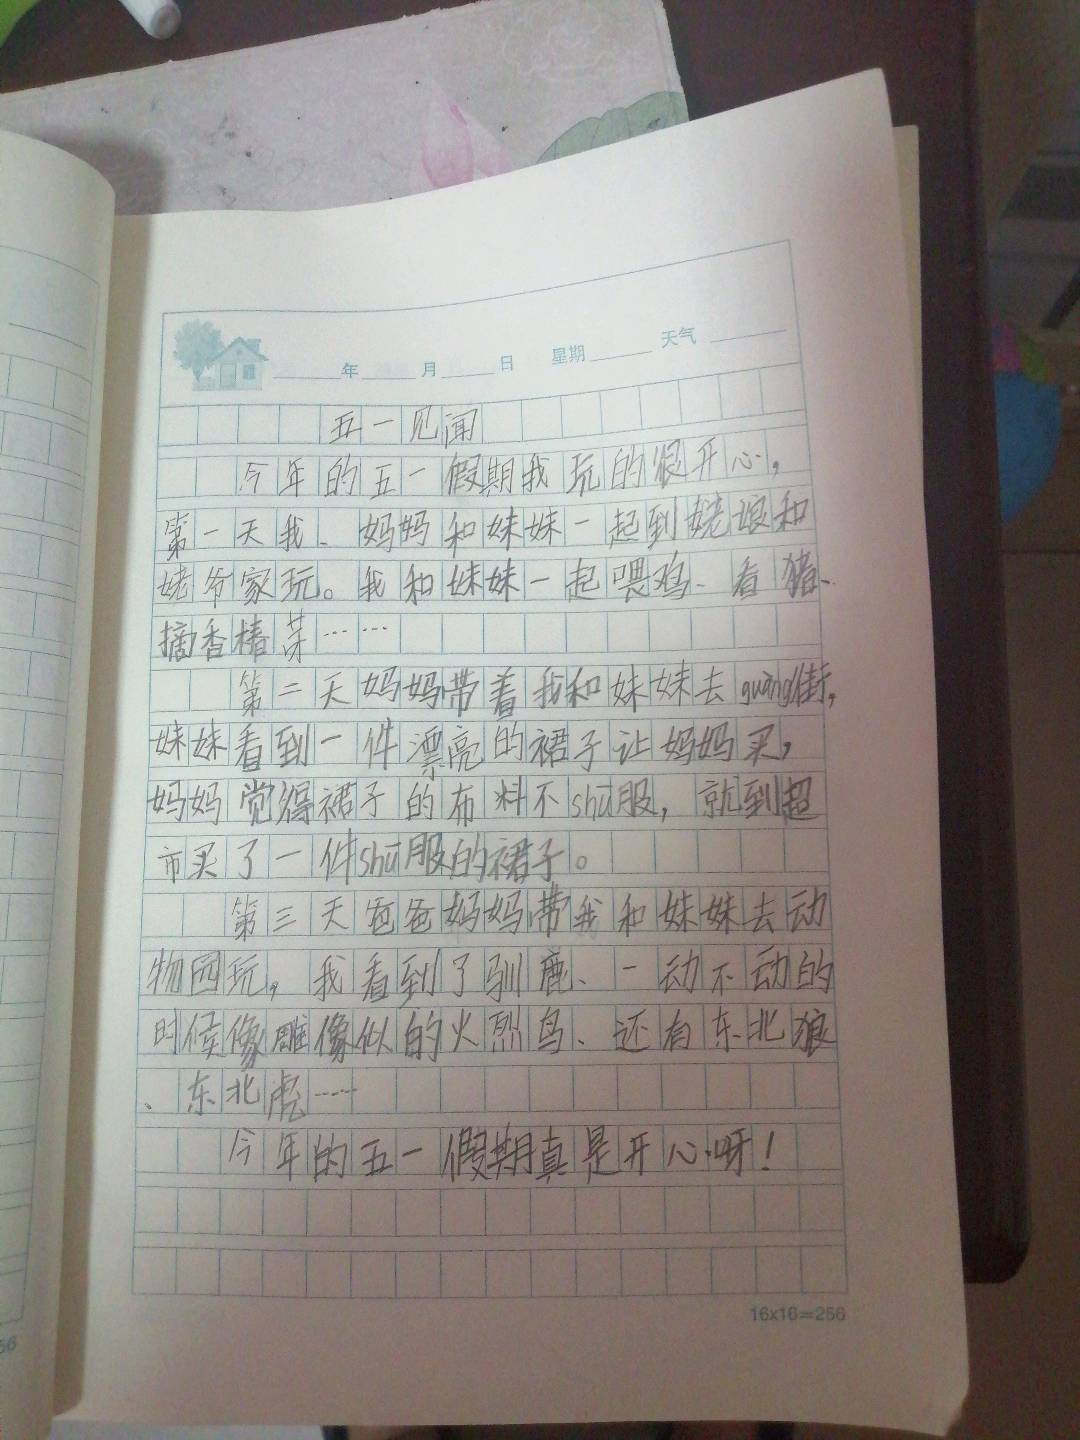 年 月 日 星期 天气
五一见闻
今年的五一假期我玩的很开心,
第一天我、妈妈和妹妹一起到姥娘和
姥爷家玩。我和妹妹一起喂鸡、看猪、
摘香椿芽……
第二天妈妈带着我和妹妹去guàng街,
妹妹看到一件漂亮的裙子让妈妈买,
妈妈觉得裙子的布料不shū服,就到超
市买了一件shū服的裙子。
第三天爸爸妈妈带我和妹妹去动
物园玩,我看到了驯鹿、一动不动的
时候像雕像似的火烈鸟、还有东北狼
、东北虎……
今年的五一假期真是开心呀!
16x16=256
56